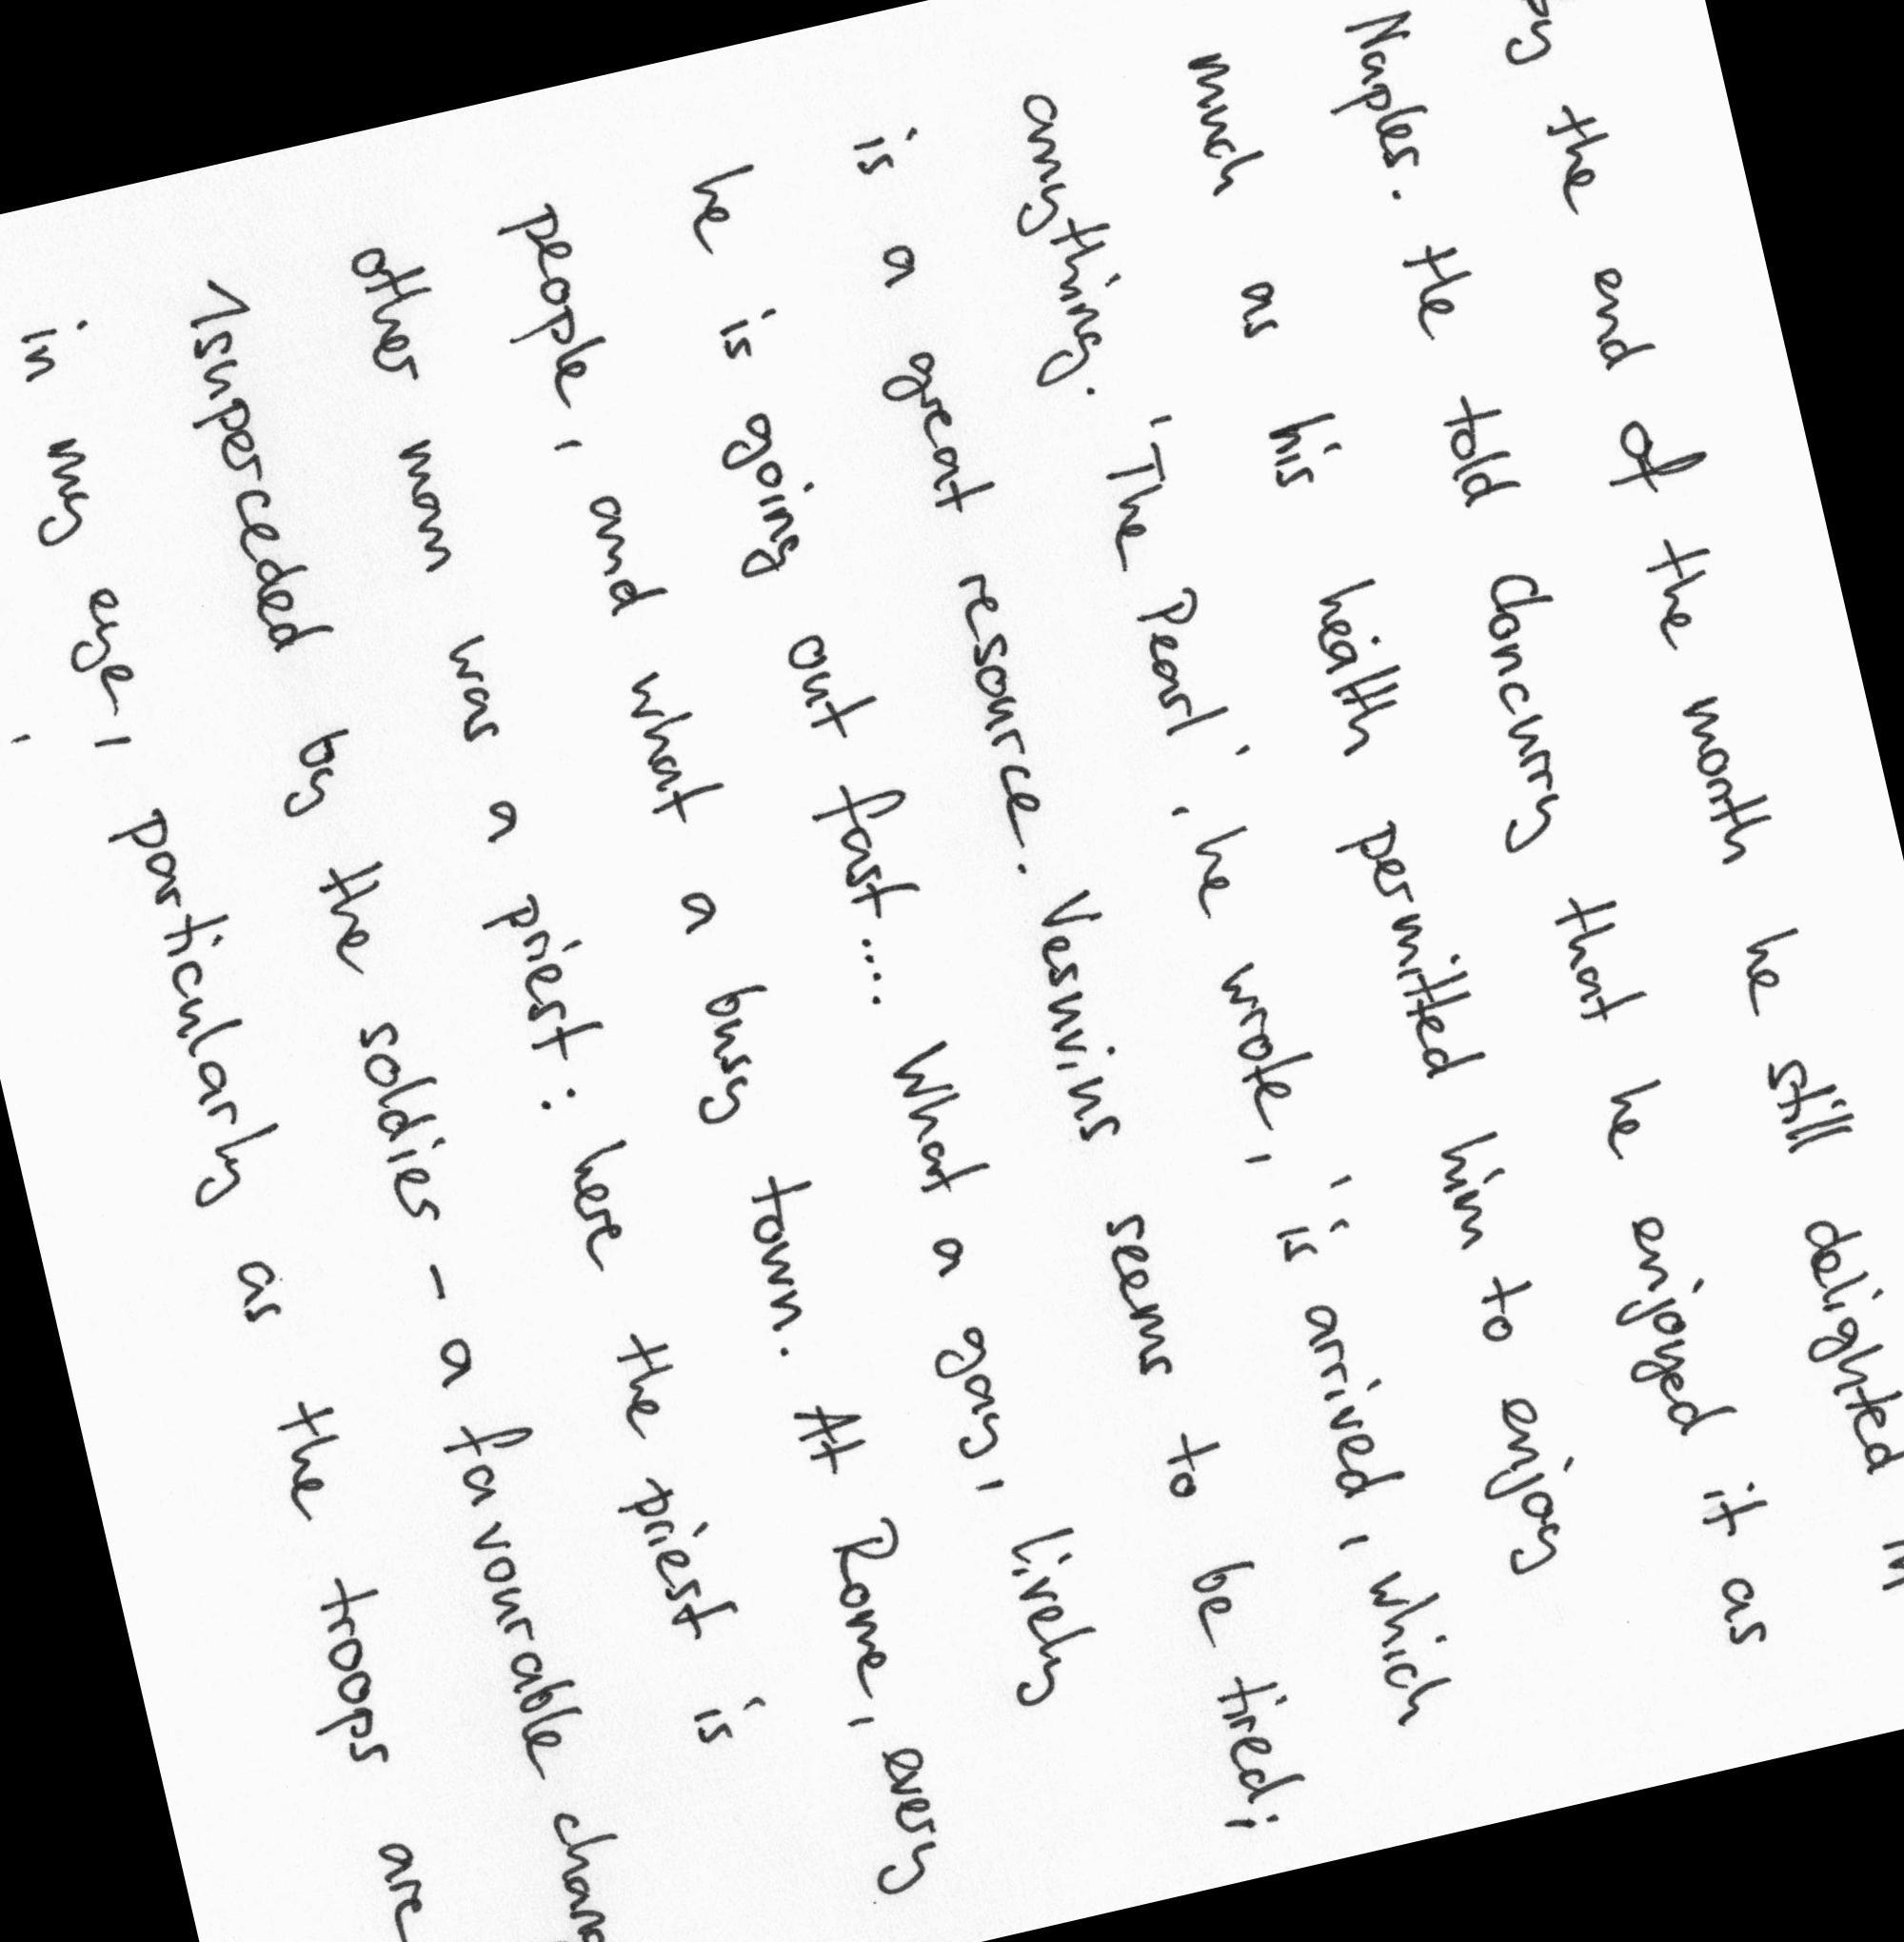 the end of the month he still delighted
Naples. He told Cloncurry that he enjoyed it as
much as his health permitted him to enjoy
anything. 'The Pearl', he wrote, '' is arrived, which
is a great resource. Vesuvius seems to be tired;
he is going out fast.... What a gay, lively
people, and what a busy town. At Rome, every
other man was a priest: here the priest is
superceded by the soldies - a favourable
in my eye, particularly as the troops are